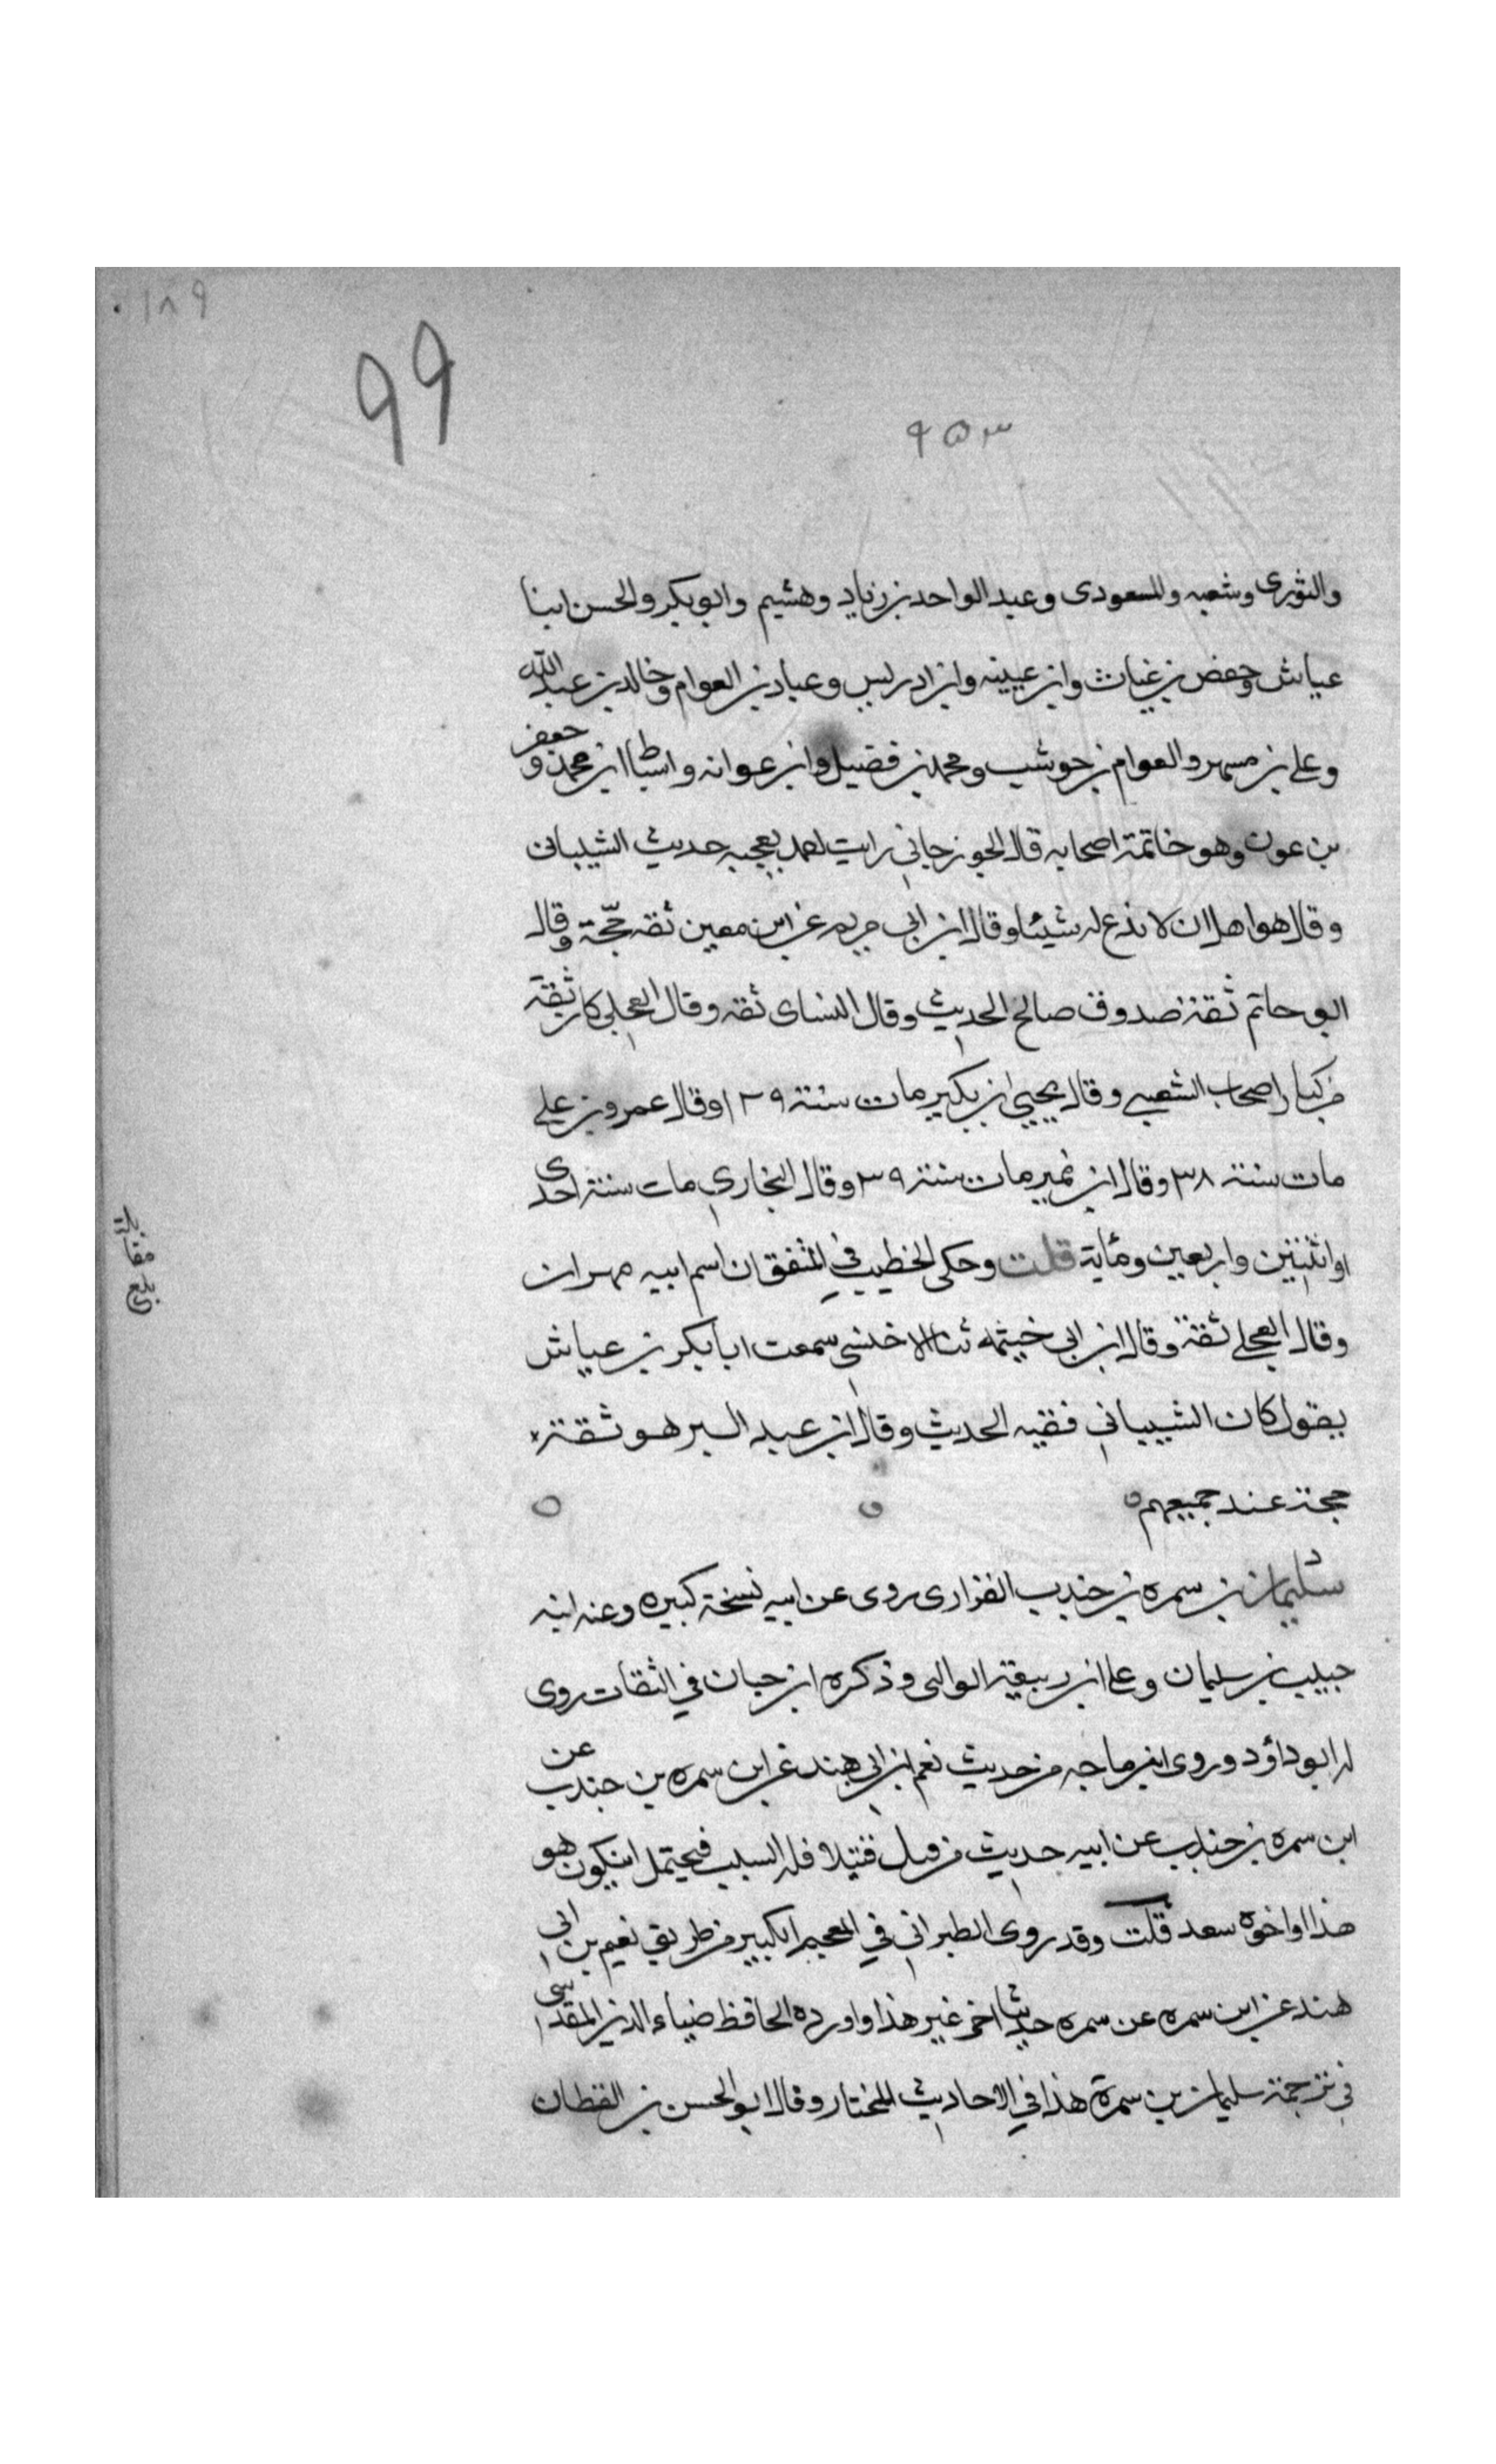 ١٨٩
٩٩
٩٥٣
والثوری وشعبه والمسعودی وعبد الواحد بن زیاد وهشیم وابو بکر والحسن ابنا
عیاش وحفص بن غیاث وابن عیینه وابن ادریس وعباد بن العوام وخالد بن عبد الله
وعلی بن مسهر والعوام بن حوشب ومحمد بن فضیل وابن عوانه واسباط ابن محمد وجعفر
بن عون وهو خاتمة اصحابه قال الجوزجانی رایت احمد یعجبه حدیث الشیبانی
وقال هو اهل ان لا ندع له شیئا وقال ابن ابی مریم عن ابن معین ثقه حجّة وقال
ابو حاتم ثقة صدوق صالح الحدیث وقال النسای ثقه وقال العجلی کان ثقة
من کبار اصحاب الشعبی وقال یحیی ابن بکیر مات سنة ١٢٩ وقال عمرو بن علی
مات سنة ٣٨ وقال ابن نمیر مات سنة ٣٩ وقال البخاری مات سنة احدی
او اثنتین واربعین ومایة قلت وحکی الخطیب فی المتفق ان اسم ابیه مهران
وقال العجلی ثقة وقال ابن ابی خیثمه ثنا الاخنسی سمعت ابا بکر بن عیاش
یقول کان الشیبانی فقیه الحدیث وقال ابن عبد البر هو ثقة
حجة عند جمیعهم
سلیمان بن سمره بن جندب الفزاری روی عن ابیه نسخة کبیره وعنه ابنه
حبیب بن سلیمان وعلی ابن ربیعة الوالبی وذکره ابن حبان فی الثقات روی
له ابو داؤد وروی ابن ماجه من حدیث نعیم ابن ابی هند عن ابن سمره بن جندب عن
ابن سمره بن جندب عن ابیه حدیث من قتل قتیلا فله السلب فیحتمل ان یکون هو
هذا او اخوه سعد قلت وقد روی الطبرانی فی المعجم الکبیر من طریق نعیم بن ابی
هند عن ابن سمره عن سمره حدیثا اخر غیر هذا واورده الحافظ ضیاء الدین المقدسی
فی ترجمة سلیمان بن سمرة هذا فی الاحادیث المختار وقال ابو الحسن بن القطان